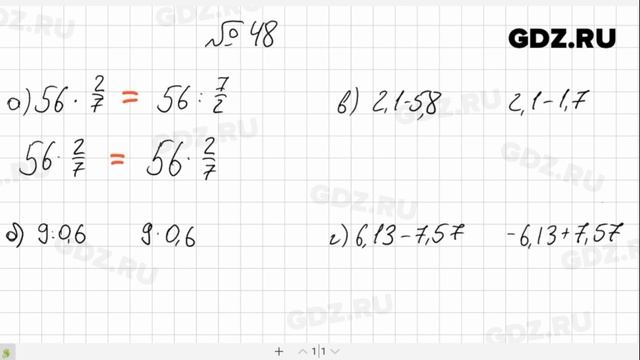 №48
GDZ.RU
а) 56 · 2/7 = 56 : 7/2
56 · 2/7 = 56 · 2/7
в) 2,1-5,8 2,1-1,7
б) 9:0,6 9·0,6
г) 6,13-7,57 -6,13+7,57
GDZ.RU
GDZ.RU
GDZ.RU
GDZ.RU
GDZ.RU
GDZ.RU
GDZ.RU
GDZ.RU
+ 1|1